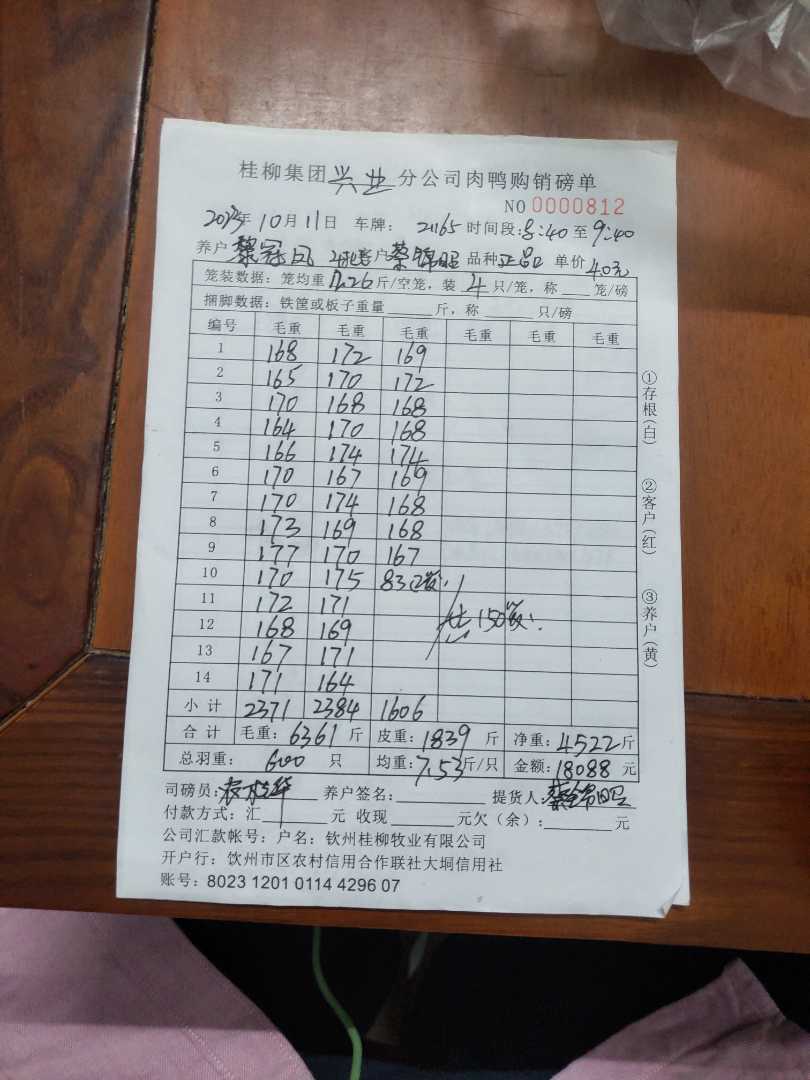 桂柳集团兴业分公司肉鸭购销磅单
NO 0000812
年10月11日 车牌: 21165 时间段:8:40至9:40
养户 黎冠凤 客户 蔡锦昭 品种正品 单价40元
笼装数据: 笼均重12.26斤/空笼, 装4只/笼, 称___笼/磅
捆脚数据: 铁筐或板子重量_____斤, 称_____只/磅
编号 毛重 毛重 毛重 毛重 毛重 毛重
1 168 172 169
2 165 170 172
3 170 168 168
4 164 170 168
5 166 174 174
6 170 167 169
7 170 174 168
8 173 169 168
9 177 170 167
10 170 175 83
11 172 171
12 168 169 共150
13 167 171
14 171 164
小计 2371 2384 1606
合计 毛重: 6361斤 皮重: 1839斤 净重: 4522斤
总羽重: 600 只 均重: 7.53斤/只 金额: 18088元
司磅员: 养户签名:_________ 提货人: 蔡锦昭
付款方式: 汇_______元 收现_______元欠(余):_______元
公司汇款帐号: 户名: 钦州桂柳牧业有限公司
开户行: 饮州市区农村信用合作联社大垌信用社
账号: 8023 1201 0114 4296 07
①存根(白)
②客户(红)
③养户(黄)